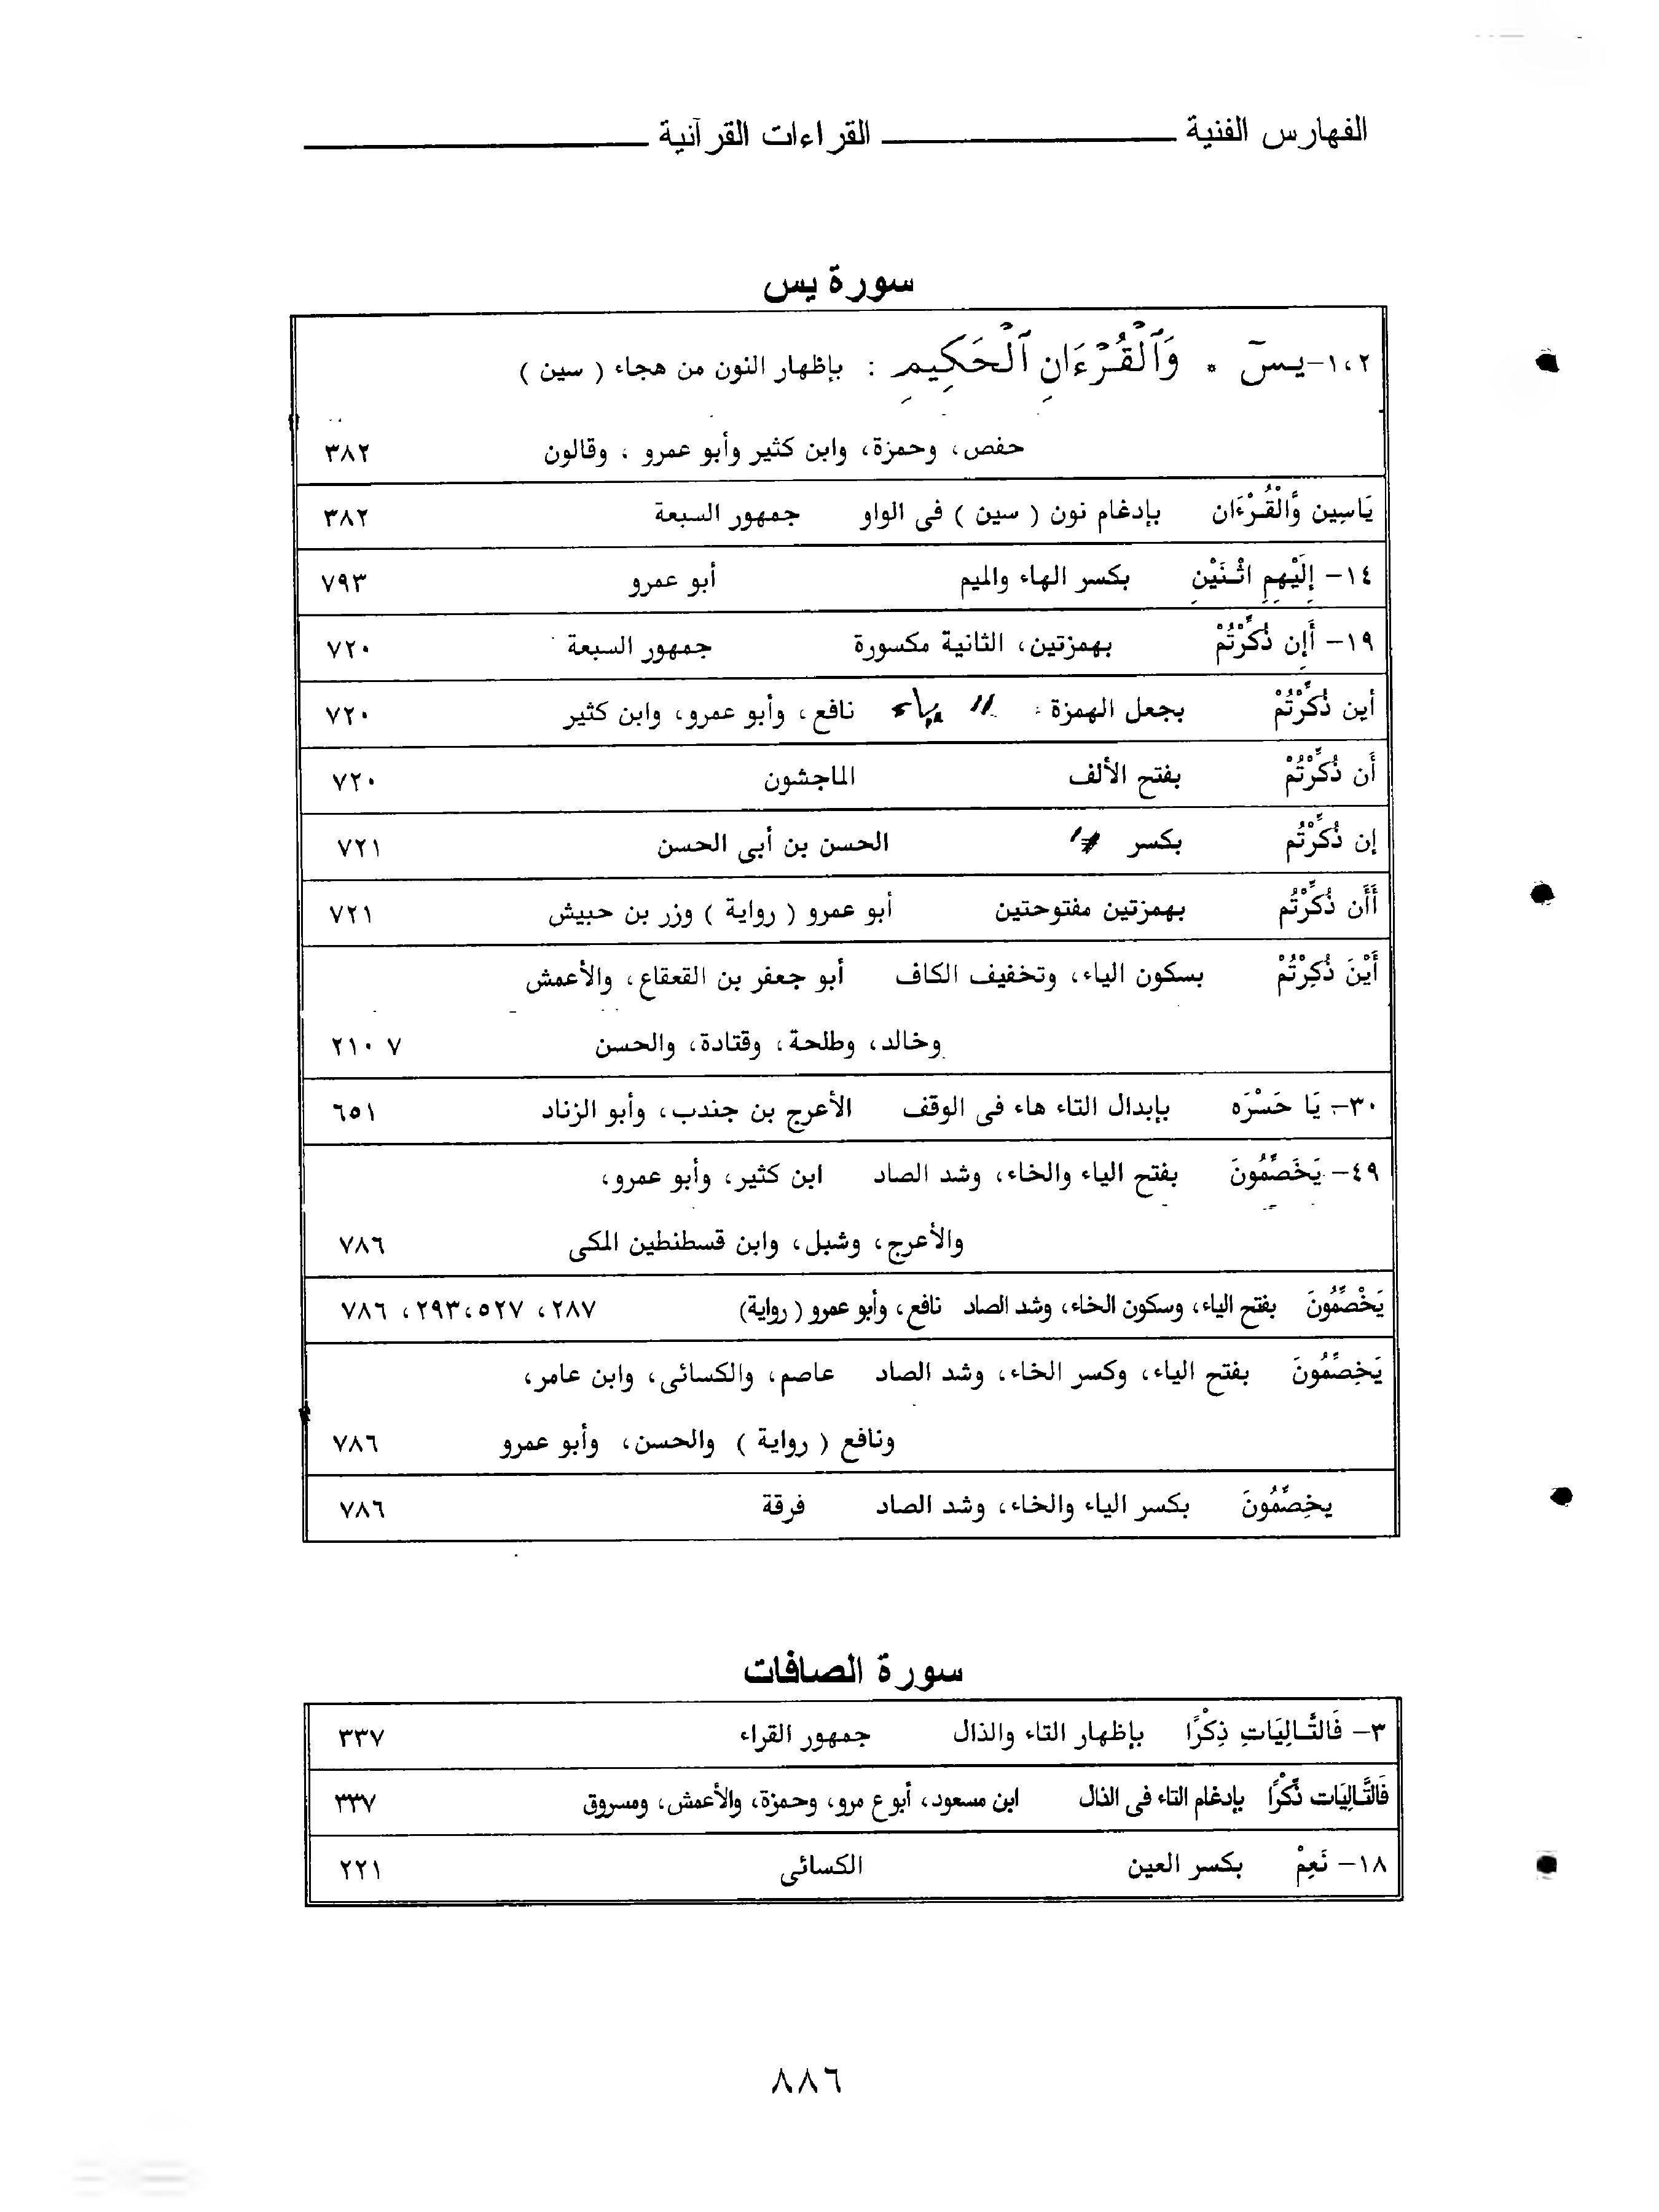 الفهارس الفنية القراءات القرآنية
سورة يس
١،٢-يسٓ * وَٱلْقُرْءَانِ ٱلْحَكِيمِ : بإظهار النون من هجاء ( سين )
حفص، وحمزة، وابن كثير وأبو عمرو ، وقالون ٣٨٢
يَاسِين وَّالْقُرْءَان بإدغام نون ( سين ) فى الواو جمهور السبعة ٣٨٢
١٤- إِلَيْهِمِ اثْنَيْنِ بكسر الهاء والميم أبو عمرو ٧٩٣
١٩- أَإِن ذُكِّرْتُمْ بهمزتين، الثانية مكسورة جمهور السبعة ٧٢٠
أين ذُكِّرْتُمْ بجعل الهمزة ياء نافع، وأبو عمرو، وابن كثير ٧٢٠
أَن ذُكِّرْتُمْ بفتح الألف الماجشون ٧٢٠
إن ذُكِّرْتُم بكسر الحسن بن أبى الحسن ٧٢١
أَأَن ذُكِّرْتُم بهمزتين مفتوحتين أبو عمرو ( رواية ) وزر بن حبيش ٧٢١
أَيْنَ ذُكِرْتُمْ بسكون الياء، وتخفيف الكاف أبو جعفر بن القعقاع، والأعمش
وخالد، وطلحة، وقتادة، والحسن ٧ ٢١٠
٣٠- يَا حَسْرَه بإبدال التاء هاء فى الوقف الأعرج بن جندب، وأبو الزناد ٦٥١
٤٩- يَخَصِّمُونَ بفتح الياء والخاء، وشد الصاد ابن كثير، وأبو عمرو،
والأعرج، وشبل، وابن قسطنطين المكى ٧٨٦
يَخْصِّمُونَ بفتح الياء، وسكون الخاء، وشد الصاد نافع، وأبو عمرو (رواية) ٢٨٧، ٢٩٣،٥٢٧، ٧٨٦
يَخِصِّمُونَ بفتح الياء، وكسر الخاء، وشد الصاد عاصم، والكسائى، وابن عامر،
ونافع ( رواية ) والحسن، وأبو عمرو ٧٨٦
يخِصِّمُونَ بكسر الياء والخاء، وشد الصاد فرقة ٧٨٦
سورة الصافات
٣- فَالتَّالِيَاتِ ذِكْرًا بإظهار التاء والذال جمهور القراء ٣٣٧
فَالتَّالِيَات ذِّكْرًا بإدغام التاء فى الذال ابن مسعود، أبو ع مرو، وحمزة، والأعمش، ومسروق ٣٣٧
١٨- نَعِمْ بكسر العين الكسائى ٢٢١
٨٨٦